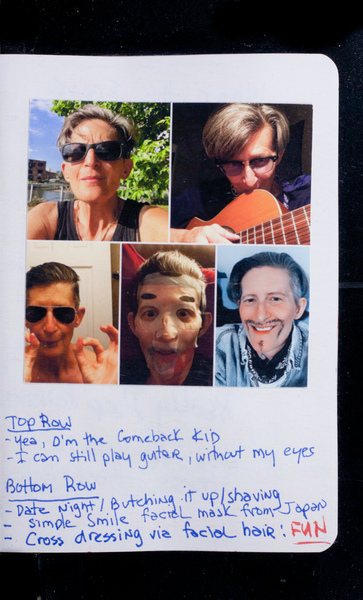 Top Row
- Yea, I'm the Comeback Kid
- I can still play guiter, without my eyes
Bottom Row
- Date Night / Butching it up/shaving
- Simple Smile facial mask from Japan
- Cross dressing via facial hair: FUN